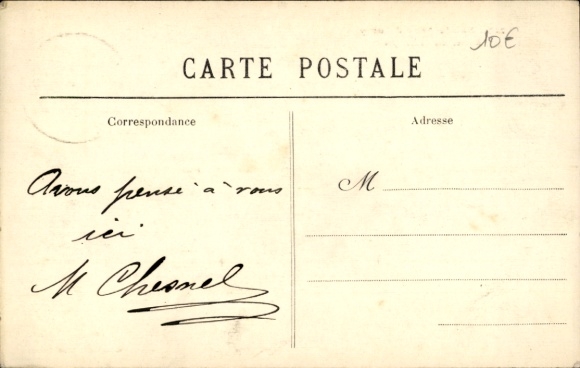 10€
CARTE POSTALE
Correspondance
Adresse
Avons pensé à vous
ici
M Chesnel
M